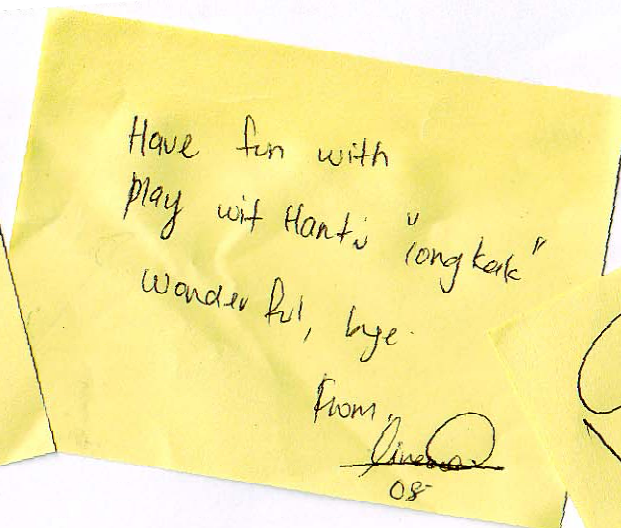 Have fun with
play wit Hantu "congkak"
wonderful, bye.
From,
08